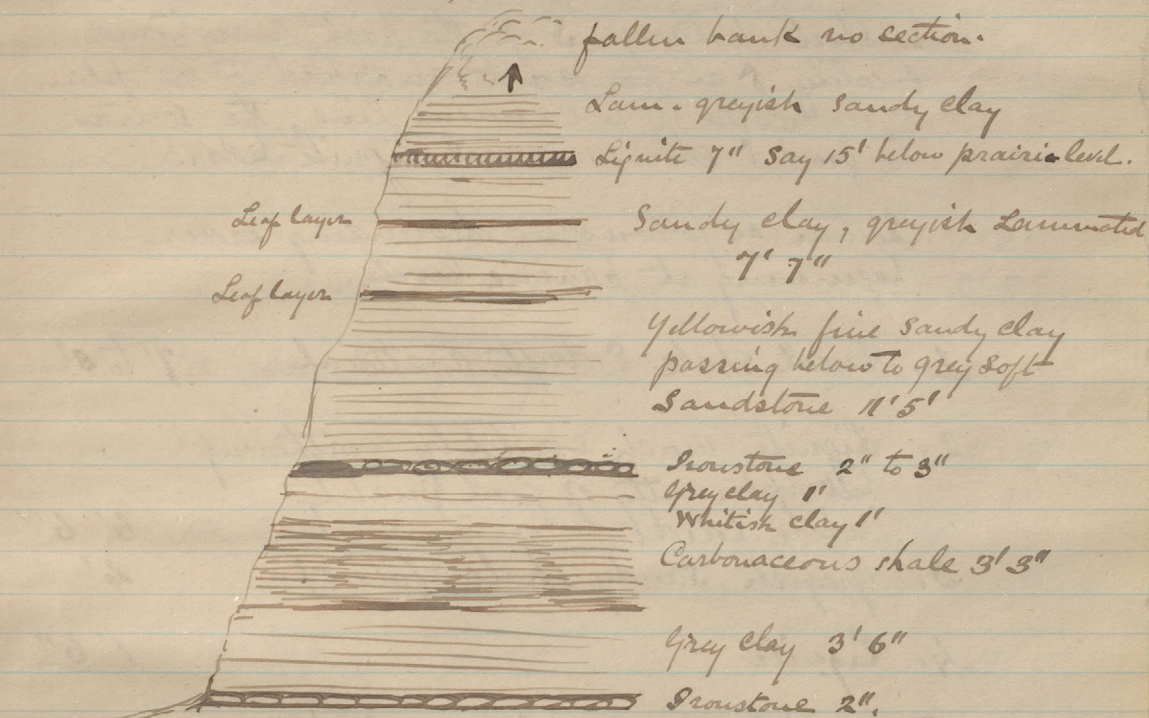 fallen bank no section.
Lam. greyish sandy clay
Lignite 7" Say 15' below prairie level.
Leaf layer
Sandy clay, greyish Laminated
7' 7"
Leaf layer
Yellowish fine sandy clay
passing below to grey soft
Sandstone 11' 5'
Ironstone 2" to 3"
Grey clay 1'
Whitish clay 1'
Carbonaceous shale 3' 3"
Grey clay 3' 6"
Ironstone 2".